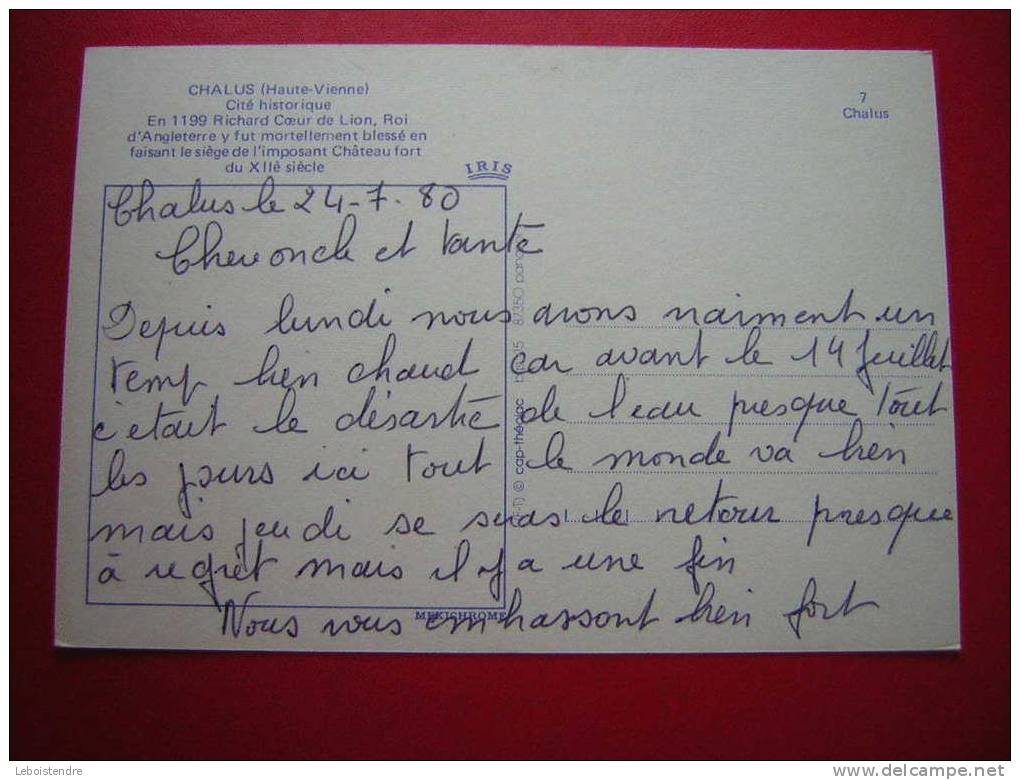 CHALUS (Haute-Vienne)
Cité historique
En 1199 Richard Cœur de Lion, Roi
d'Angleterre y fut mortellement blessé en
faisant le siège de l'imposant Château fort
du XIIè siècle
7
Chalus
IRIS
Chalus le 24-7-80
Cher oncle et tante
Depuis lundi nous avons vraiment un
temp bien chaud car avant le 14 Juillet
c'etait le désastre de l'eau presque tout
les jours ici tout le monde va bien
mais jeudi se suas le retour presque
à regrêt mais il y a une fin
Nous vous embrassont bien fort
MEXICHROME
© cap-théojac
87350 panazol
Leboistendre
www.delcampe.net